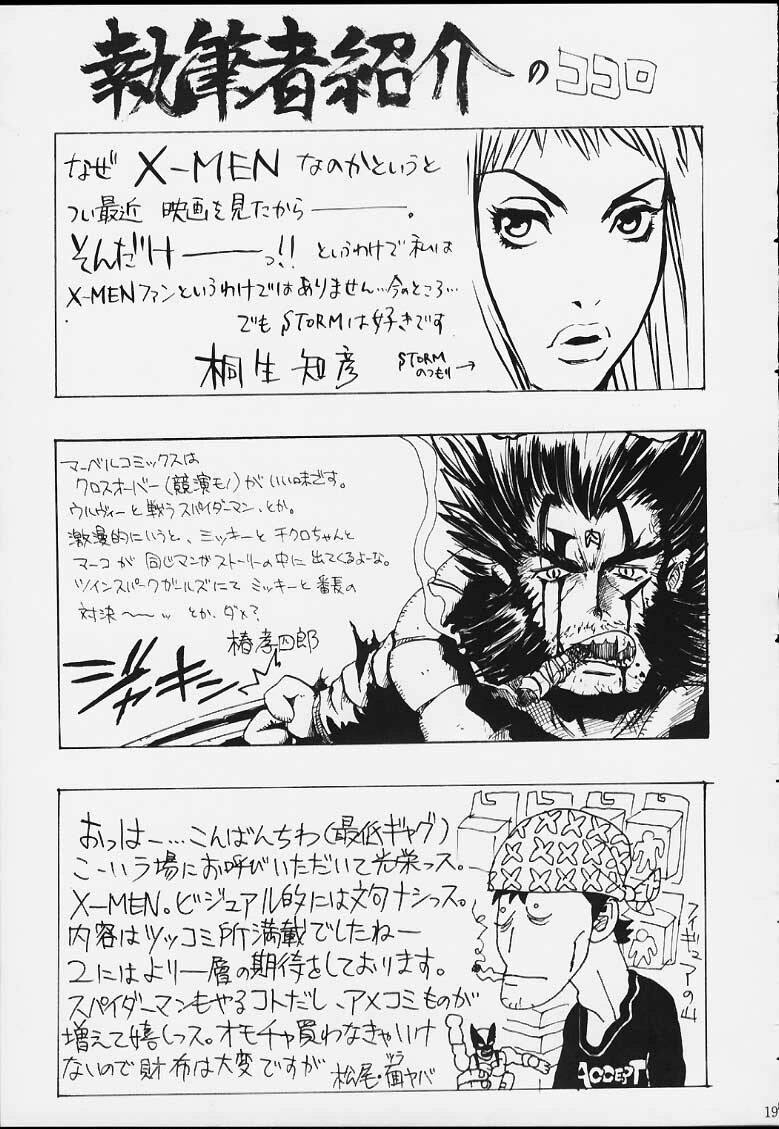 執筆者紹介のココロ
なぜ X-MEN なのかというと
つい最近 映画を見たから―――。
そんだけ――っ!! というわけで私は
X-MENファンというわけではありません…今のところ…
でも STORMは好きです
桐生知彦
STORM
のつもり→
マーベルコミックスは
クロスオーバー(競演モノ)がいい味です。
ウルヴィーと戦うスパイダーマン、とか。
激漫的にいうと、ミッキーとチクロちゃんと
マーコが同じマンガストーリーの中に出てくるよーな。
ツインスパークガールズにてミッキーと番長の
対決〜〜ッ とか、ダメ?
椿孝四郎
ジャキン
おっはー……こんばんちわ(最低ギャグ)
こーいう場にお呼びいただいて光栄っス。
X-MEN。ビジュアル的には文句ナシっス。
内容はツッコミ所満載でしたねー
2にはより一層の期待をしております。
スパイダーマンもやるコトだし、アメコミものが
増えて嬉しっス。オモチャ買わなきゃいけ
ないので財布は大変ですが
松尾・面ヤバ
ヅラ
フィギュアの山
ACCEPT
19